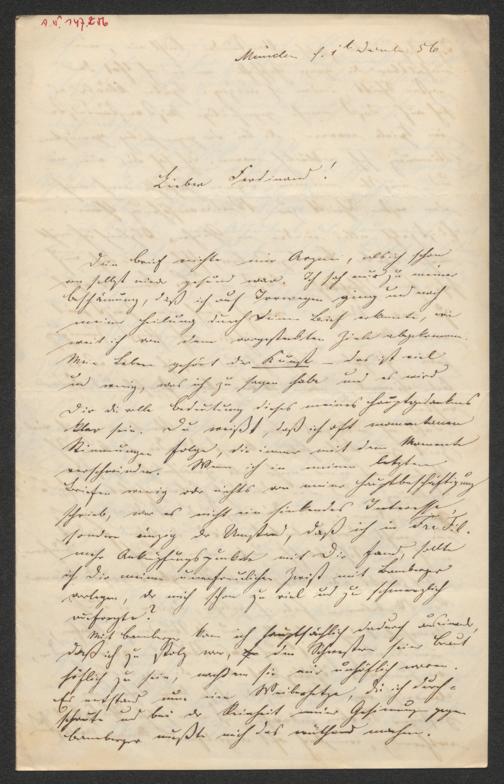 A.N. 147.206
München d. 1t Decemb. 56.
Lieber Ferdinand!
Dein Brief reichte mir Arznei, als ich schon
von selbst wieder gesund war. Ich sah nur zu meiner
Beschämung, daß ich auf Irrwegen ging und nach
meiner Heilung durch Deinen Brief erkannte, wie
weit ich von dem vorgesteckten Ziele abgekommen.
Mein Leben gehört der Kunst – das ist viel
und wenig, was ich zu sagen habe und es wird
Dir die volle Bedeutung dieses meines Hauptgedankens
klar sein. Du weißt, daß ich oft momentanen
Stimmungen folge, die immer mit dem Momente
verschwinden. Wenn ich in meinen letzten
Briefen wenig oder nichts von meiner Hauptbeschäftigung
schrieb, war es nicht ein sinkendes Interesse,
sondern einzig der Umstand, daß ich in
mehr Anknüpfungspunkte mit Dir fand, sollte
ich Dir meinen unerfreulichen Zwist mit Bamberger
vorlegen, der mich schon zu viel und zu schmerzlich
aufregte?
Mit Bamberger kam ich hauptsächlich dadurch auseinander,
daß ich zu stolz war, den Schwestern seiner Braut
höflich zu sein, nachdem sie mir unhöflich waren.
Es entstand nun eine Weiberhetze, die ich durch-
schaute und bei der Reinheit meiner Gesinnung gegen
Bamberger mußte mich das wüthend machen.